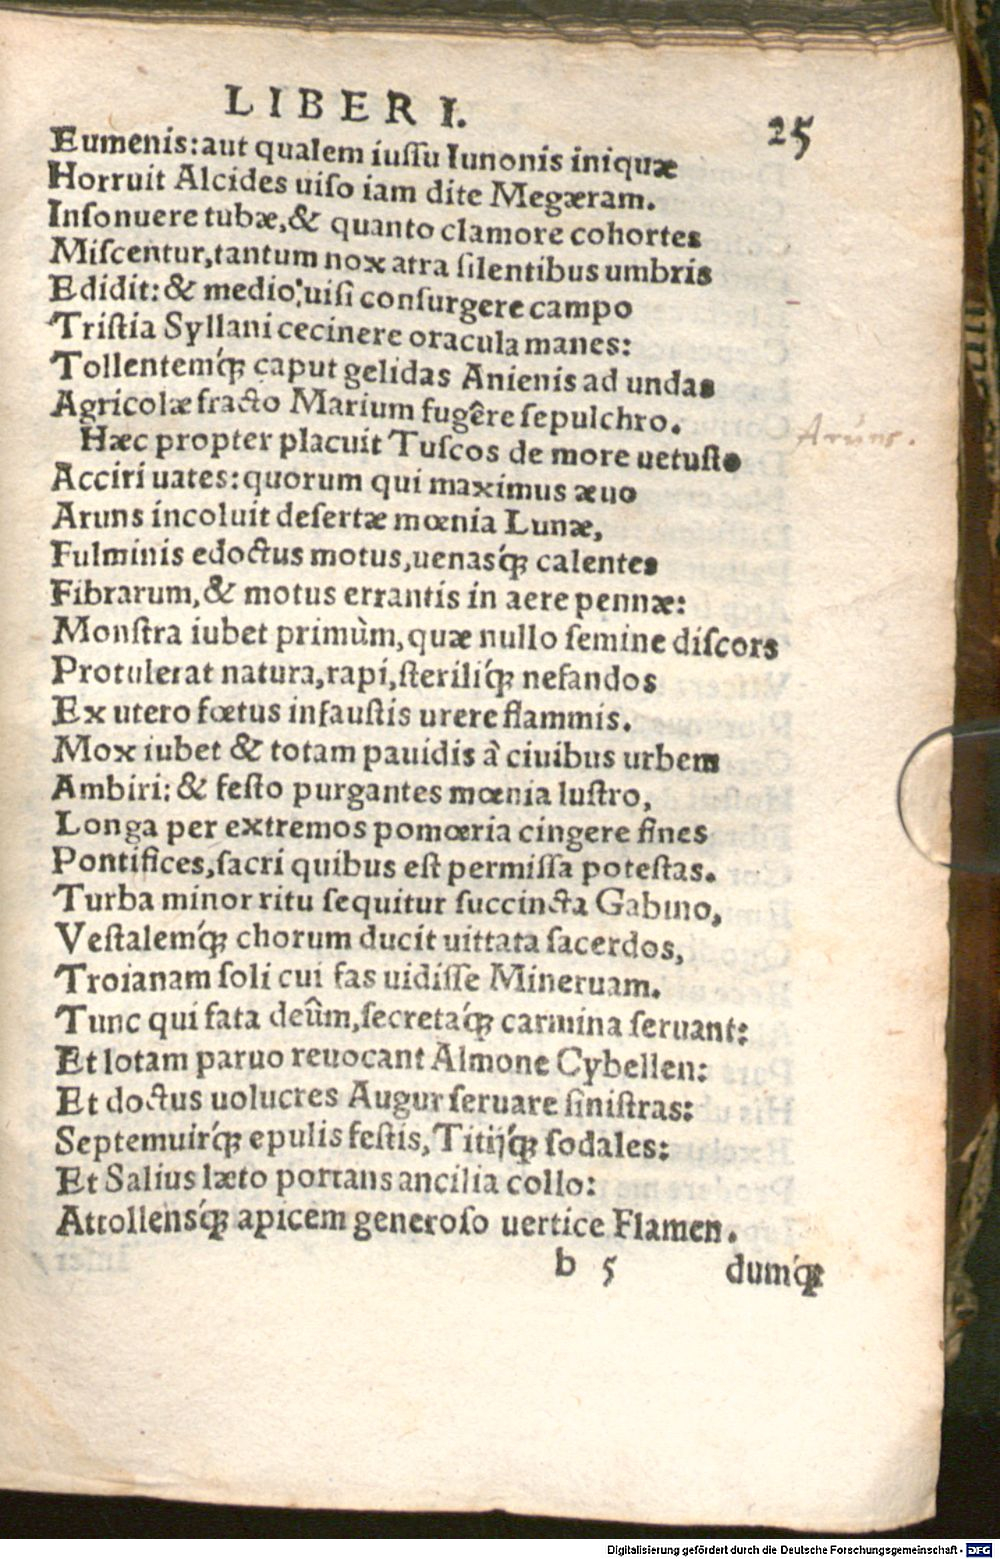 LIBER I.
25
Eumenis: aut qualem iuſſu Iunonis iniquæ
Horruit Alcides uiſo iam dite Megæram.
Inſonuere tubæ, & quanto clamore cohortes
Miſcentur, tantum nox atra ſilentibus umbris
Edidit: & medio, uiſi conſurgere campo
Triſtia Syllani cecinere oracula manes:
Tollentemq́ꝫ caput gelidas Anienis ad undas
Agricolæ fracto Marium fugêre ſepulchro.
Hæc propter placuit Tuſcos de more uetuſto
Aruns.
Acciri uates: quorum qui maximus æuo
Aruns incoluit deſertæ mœnia Lunæ,
Fulminis edoctus motus, uenasq́ꝫ calentes
Fibrarum, & motus errantis in aere pennæ:
Monſtra iubet primùm, quæ nullo ſemine diſcors
Protulerat natura, rapi, ſteriliq́ꝫ nefandos
Ex utero fœtus infauſtis urere flammis.
Mox iubet & totam pauidis à ciuibus urbem
Ambiri: & feſto purgantes mœnia luſtro,
Longa per extremos pomœria cingere fines
Pontifices, ſacri quibus eſt permiſſa poteſtas.
Turba minor ritu ſequitur ſuccincta Gabino,
Veſtalemq́ꝫ chorum ducit uittata ſacerdos,
Troianam ſoli cui fas uidiſſe Mineruam.
Tunc qui fata deûm, ſecretaq́ꝫ carmina ſeruant:
Et lotam paruo reuocant Almone Cybellen:
Et doctus uolucres Augur ſeruare ſiniſtras:
Septemuirq́ꝫ epulis feſtis, Titijq́ꝫ ſodales:
Et Salius læto portans ancilia collo:
Attollensq́ꝫ apicem generoſo uertice Flamen.
b 5 dumq́ꝫ
Digitalisierung gefördert durch die Deutsche Forschungsgemeinschaft - DFG